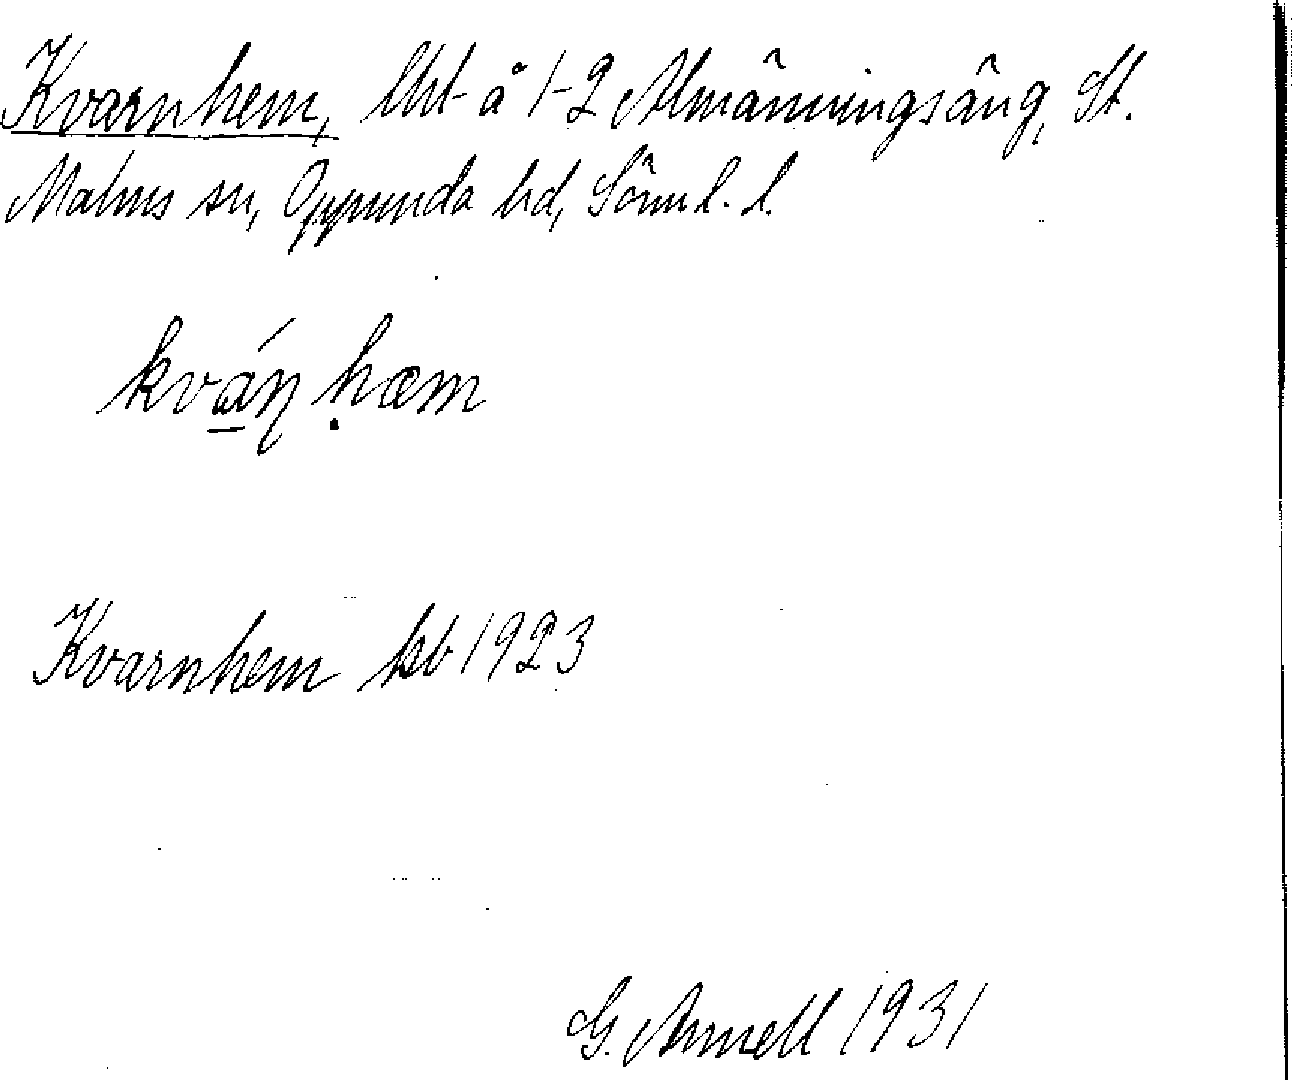 Kvarnhem, lht å 1-2 Almänningsäng, St.
Malms sn, Oppunda hd, Söml. l.
kvánhæm
Kvarnhem hsb 1923
G. Arnell 1931